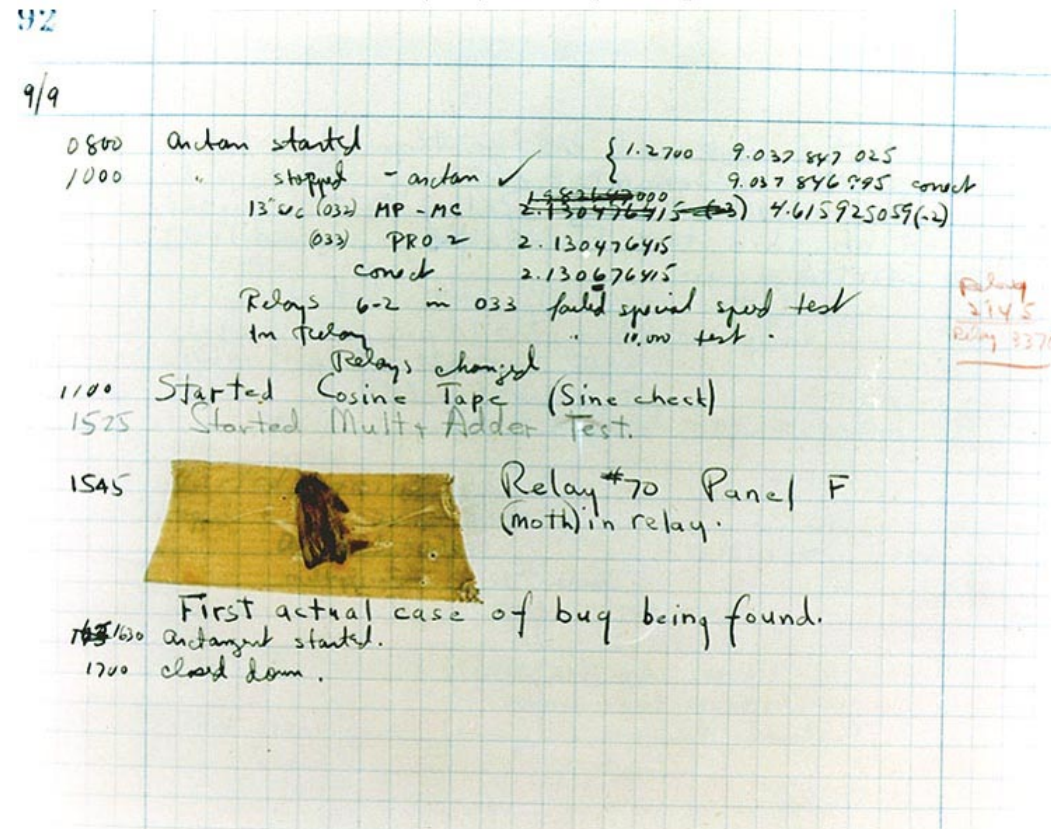 92
9/9
0800 antan started { 1.2700 9.037 847 025
1000 " stopped - antan ✓ 9.037 846 995 conect
13"uc (032) MP - MC 2.130476415 (-3) 4.615925059(-2)
(033) PRO 2 2.130476415
conect 2.130676415
Relays 6-2 in 033 failed special speed test
In Relay " 10.000 test .
Relays changed
Relay
2145
Relay 3370
1100 Started Cosine Tape (Sine check)
1525 Started Mult + Adder Test.
1545 Relay #70 Panel F
(moth) in relay.
First actual case of bug being found.
1630 antangent started.
1700 closed down .